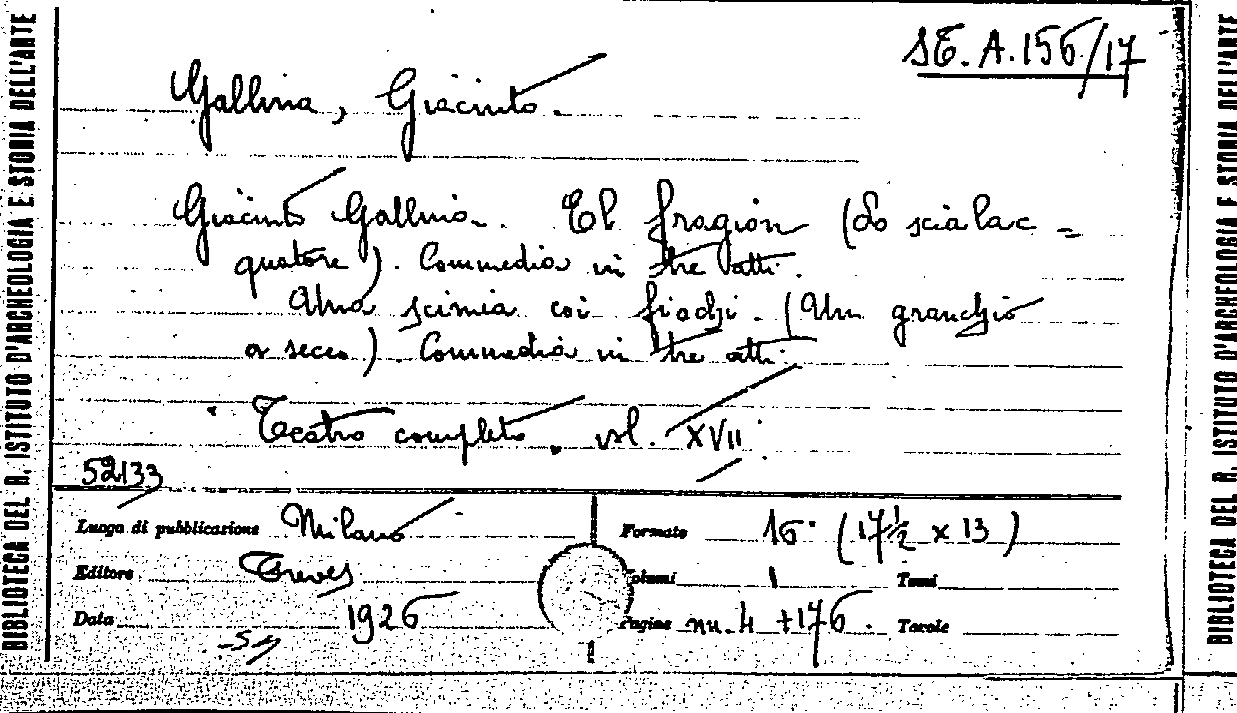 BIBLIOTECA DEL R. ISTITUTO D'ARCHEOLOGIA E STORIA DELL'ARTE
SE. A. 156/17
Gallina, Giacinto.
Giacinto Gallina. El fragion (Lo scialac=
quatore). Commedia in tre atti.
Una scimia coi fiochi. (Un granchio
a secco). Commedia in tre atti.
Teatro completo, vol. XVII
52133
Luogo di pubblicazione Milano
Formato 16° (17½ x 13)
Editore Treves
Volumi 1 Tomi
Data 1926
Pagine nu. 4 + 176. Tavole
BIBLIOTECA DEL R. ISTITUTO D'ARCHEOLOGIA E STORIA DELL'ARTE